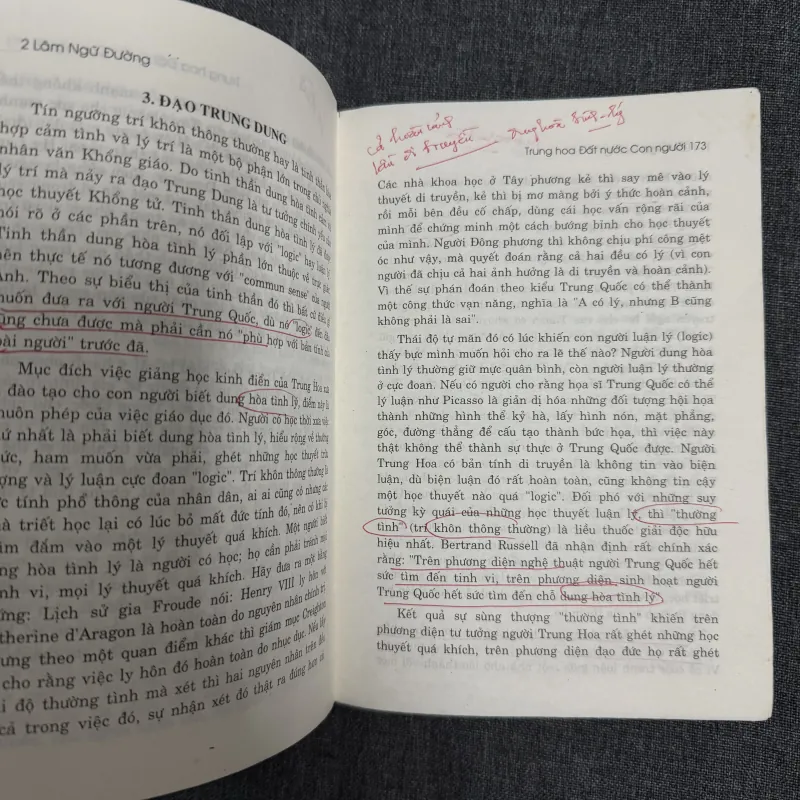 2 Lâm Ngữ Đường
3. ĐẠO TRUNG DUNG
Tín ngưỡng trí khôn thông thường hay là tinh thần hòa
hợp cảm tình và lý trí là một bộ phận lớn trong chủ nghĩa
nhân văn Khổng giáo. Do tinh thần dung hòa tình cảm và
lý trí mà nảy ra đạo Trung Dung là tư tưởng chính yếu của
học thuyết Khổng tử. Tinh thần dung hòa tình lý đã được
nói rõ ở các phần trên, nó đối lập với "logic" hay luận lý.
Tinh thần dung hòa tình lý phần lớn thuộc về trực giác
nên thực tế nó tương đương với "commun sense" của người
Anh. Theo sự biểu thị của tinh thần đó thì bất cứ điều gì
muốn đưa ra với người Trung Quốc, dù nó "logic" đến đâu
cũng chưa được mà phải cần nó "phù hợp với bản tính của
loài người" trước đã.
Mục đích việc giảng học kinh điển của Trung Hoa mà
đào tạo cho con người biết dung hòa tình lý, điểm này là
khuôn phép của việc giáo dục đó. Người có học thời mà việc
thứ nhất là phải biết dung hòa tình lý, hiểu rộng về thường
thức, ham muốn vừa phải, ghét những học thuyết trừu
tượng và lý luận cực đoan "logic". Trí khôn thông thường là
đức tính phổ thông của nhân dân, ai ai cũng có nhưng các
nhà triết học lại có lúc bỏ mất đức tính đó, nên có khi bị
đắm vào một lý thuyết quá khích. Một người biết
dung hòa tình lý là người có học; họ cần phải tránh mọi
hành vi, mọi lý thuyết quá khích. Hãy đưa ra một bằng
chứng: Lịch sử gia Froude nói: Henry VIII ly hôn với
Catherine d'Aragon là hoàn toàn do nguyên nhân chính trị,
nhưng theo một quan điểm khác thì giám mục Creighton
cho rằng việc ly hôn đó hoàn toàn do nhục dục. Nếu lấy
thái độ thường tình mà xét thì hai nguyên nhân trên đều
cả trong việc đó, sự nhận xét đó thật ra đúng hơn cả.
cả hoàn cảnh
lẫn di truyền
Trung hoa Đất nước Con người 173
Các nhà khoa học ở Tây phương kẻ thì say mê vào lý
thuyết di truyền, kẻ thì bị mơ màng bởi ý thức hoàn cảnh,
rồi mỗi bên đều cố chấp, dùng cái học vấn rộng rãi của
mình để chứng minh một cách bướng bỉnh cho học thuyết
của mình. Người Đông phương thì không chịu phí công mệt
óc như vậy, mà quyết đoán rằng cả hai đều có lý (vì con
người đã chịu cả hai ảnh hưởng là di truyền và hoàn cảnh).
Vì thế sự phán đoán theo kiểu Trung Quốc có thể thành
một công thức vạn năng, nghĩa là "A có lý, nhưng B cũng
không phải là sai".
Thái độ tự mãn đó có lúc khiến con người luận lý (logic)
thấy bực mình muốn hỏi cho ra lẽ thế nào? Người dung hòa
tình lý thường giữ mực quân bình, còn người luận lý thường
ở cực đoan. Nếu có người cho rằng họa sĩ Trung Quốc có thể
lý luận như Picasso là giản dị hóa những đối tượng hội họa
thành những hình thể kỷ hà, lấy hình nón, mặt phẳng,
góc, đường thẳng để cấu tạo thành bức họa, thì việc này
thật không thể thành sự thực ở Trung Quốc được. Người
Trung Hoa có bản tính di truyền là không tin vào biện
luận, dù biện luận đó rất hoàn toàn, cũng không tin cậy
một học thuyết nào quá "logic". Đối phó với những suy
tưởng kỳ quái của những học thuyết luận lý, thì "thường
tình" (trí khôn thông thường) là liều thuốc giải độc hữu
hiệu nhất. Bertrand Russell đã nhận định rất chính xác
rằng: "Trên phương diện nghệ thuật người Trung Quốc hết
sức tìm đến tinh vi, trên phương diện sinh hoạt người
Trung Quốc hết sức tìm đến chỗ dung hòa tình lý".
Kết quả sự sùng thượng "thường tình" khiến trên
phương diện tư tưởng người Trung Hoa rất ghét những học
thuyết quá khích, trên phương diện đạo đức họ rất ghét